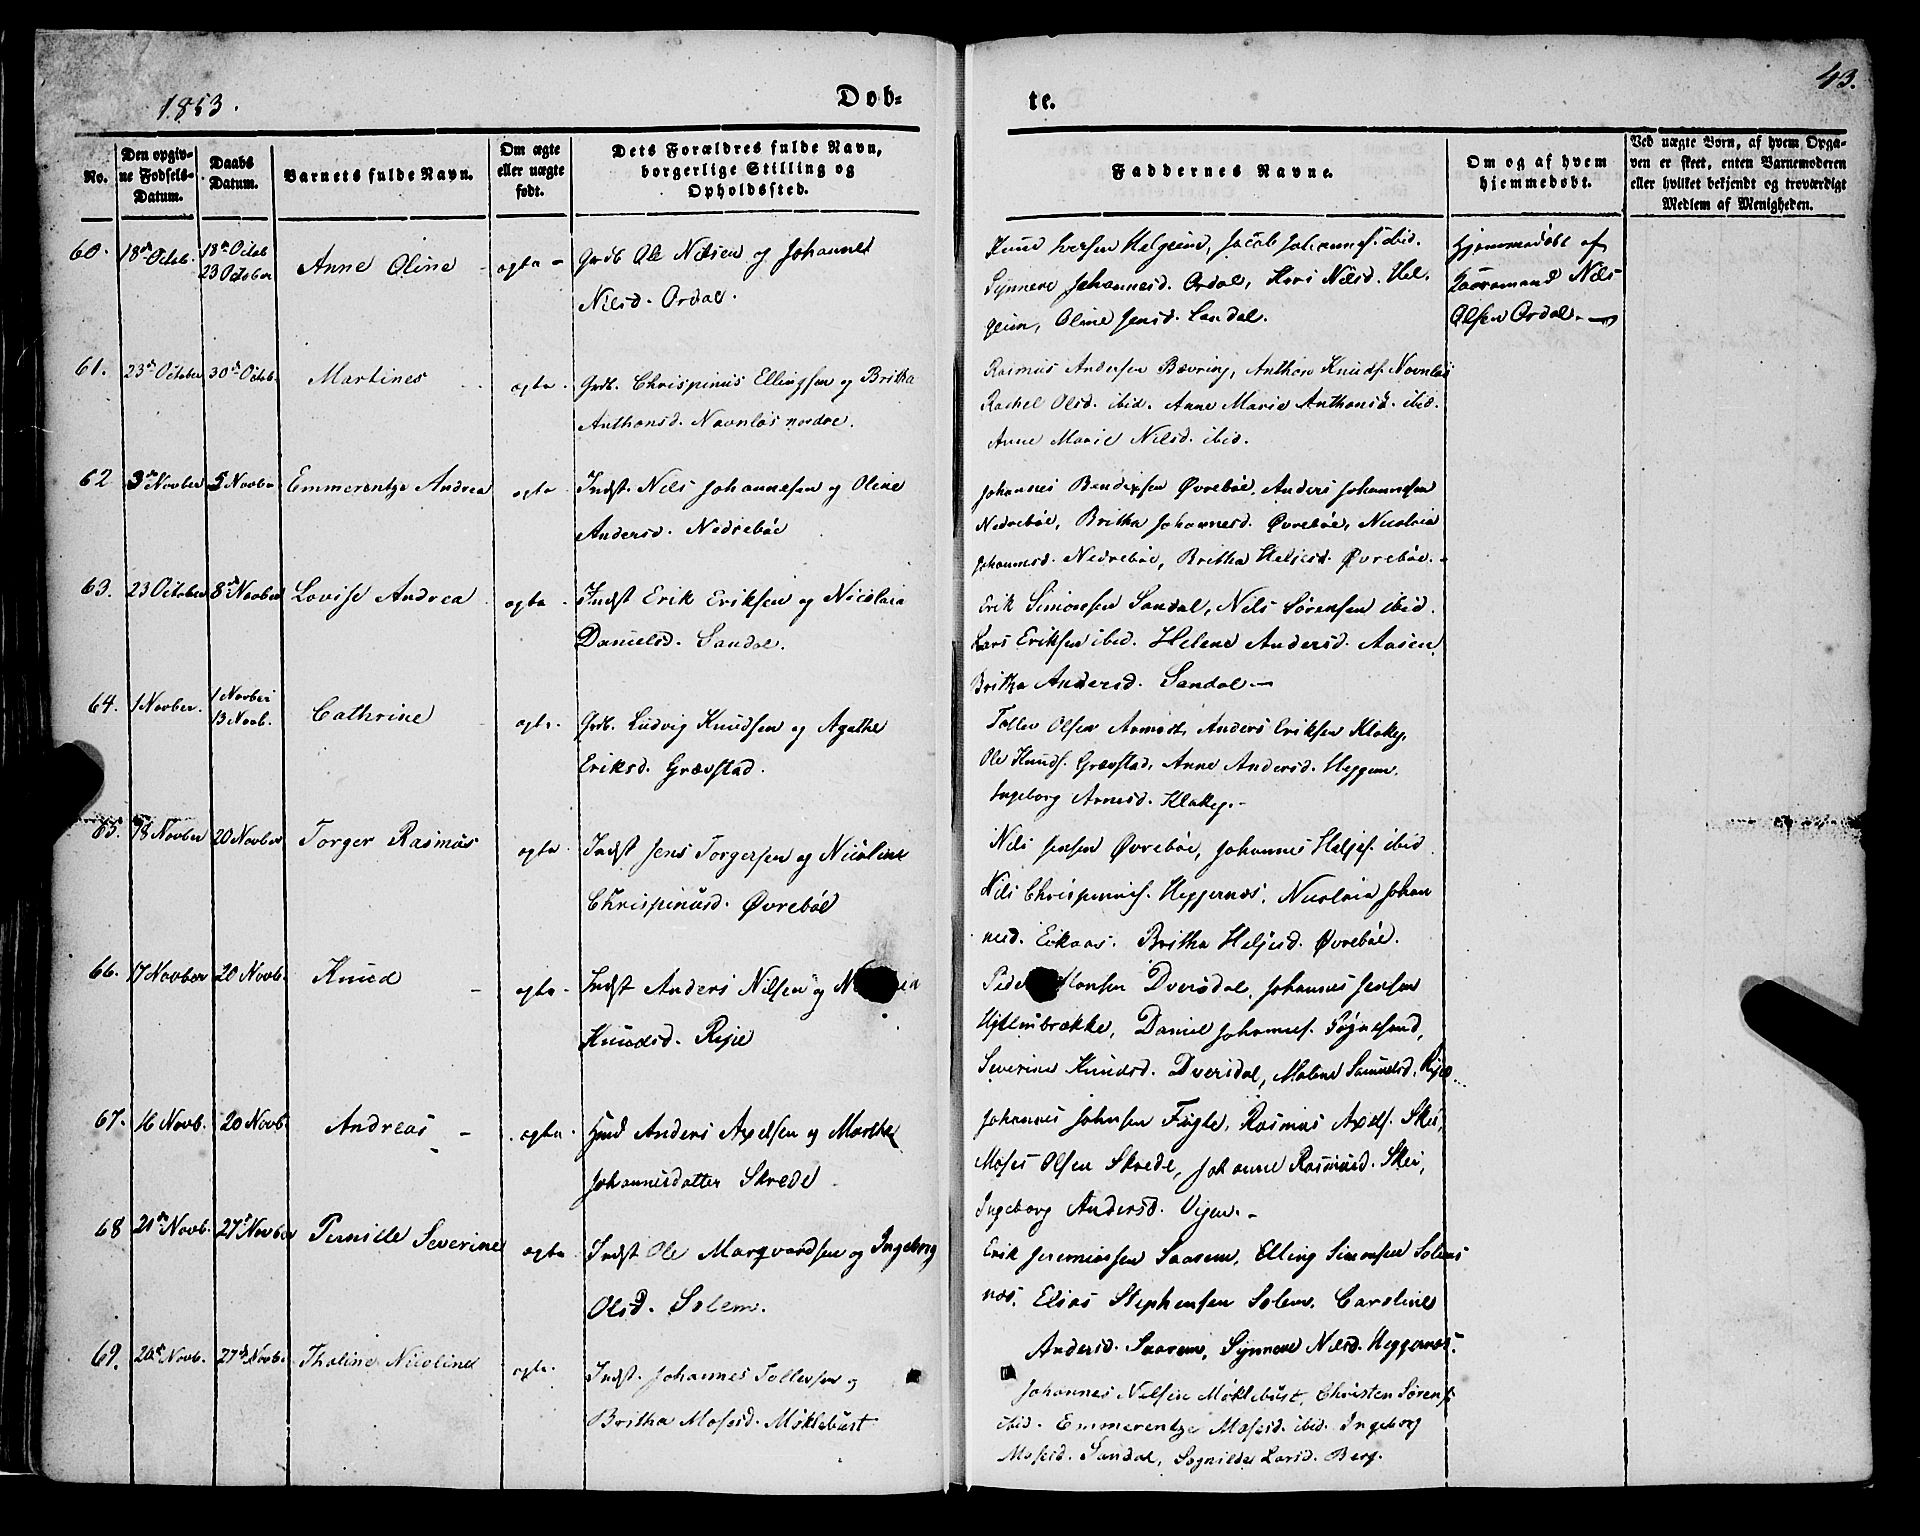 1853.
Døb-
te.
43.
No.
Den opgiv-
ne Fødsels-
Datum.
Daabs
Datum.
Barnets fulde Navn.
Om ægte
eller uægte
født.
Dets Forældres fulde Navn,
borgerlige Stilling og
Opholdssted.
Faddernes Navne.
Om og af hvem
hjemmedøbt.
Ved uægte Børn, af hvem Opga-
ven er skeet, enten Barnemoderen
eller hvilket bekjendt og troværdigt
Medlem af Menigheden.
60. 18de Octob. 18de Octob
23 October
Anne Oline - ægta -
Grdb. Ole Nilsen og Johanne
Nilsd. Ordal.
Knud Iversen Helgeim, Jacob Johannes. ibid.
Synneve Johannesd. Ordal, Kari Nilsd. Hel-
geim, Oline Jensd. Sandal.
Hjemmedøbt af
Gaardmand Nils
Olsen Ordal. -
61. 23de October 30de Octob. Martines ægta.
Grdb. Chrispinus Ellingsen og Britha
Anthonsd. Navnløs nordre.
Rasmus Andersen Bævring, Anthon Knuds. Navnløs
Rachel Olsd. ibid. Anne Marie Anthonsd. ibid.
Anne Marie Nilsd. ibid.
62 3de Novber 5 Novber Emmerentze Andrea ægta
Indst. Nils Johannesen og Oline
Andersd. Nedrebøe
Johannes Bendixsen Øvrebøe, Anders Johannesen
Nedrebøe, Britha Johannesd. Øvrebøe, Nicolaia
Johannesd. Nedrebøe, Britha Heljesd. Øvrebøe.
63. 23 October 8de Novber Lovise Andrea ægta
Indst Erik Eriksen og Nicolaia
Danielsd. Sandal.
Erik Simonsen Sandal, Nils Sørensen ibid.
Lars Eriksen ibid. Helene Andersd. Aasen
Britha Andersd. Sandal -
64. 1 Novber. 1 Novber
13 Novb.
Cathrine ægta.
Grdb. Ludvig Knudsen og Agathe
Eriksd. Grævstad.
Tollev Olsen Aamot, Anders Eriksen Klakeg,
Ole Knuds. Grævstad, Anne Andersd. Heggem.
Ingeborg Arnesd. Klakeg. -
65. 18 Novber 20 Novber Torger Rasmus ægta
Indst Jens Torgersen og Nicoline
Chrispinusd. Øvrebøe
Nils Jensen Øvrebøe, Johannes Heljes. ibid
Nils Chrispinus. Heggernæs, Nicolaia Johan
nesd. Eikaas. Britha Heljesd. Øvrebøe.
66. 17 Novber 20 Novb. Knud - ægta -
Indst Anders Nilsen og
Knudsd. Risje
Hansen Dversdal, Johannes Jensen
Hjelmbrække, Daniel Johannes. Søgnesand,
Severine Knudsd. Dversdal, Malene Samuelsd. Risje
67. 16 Novb. 20 Novb. Andreas - ægta.
Hmd Anders Axelsen og Marthe
Johannesdatter Skrede
Johannes Johnsen Fugle, Rasmus Axels. Skei,
Moses Olsen Skrede, Johanne Rasmusd. Skei,
Ingeborg Andersd. Vigen. -
68 21de Novb. 27de Novber Pernille Severine ægta
Indst Ole Marqvardsen og Ingeborg
Olsd. Solem.
Erik Jeremiassen Saasem, Elling Simonsen Solem
næs. Elias Stephensen Solem, Caroline
Andersd. Saasem, Synneve Nilsd. Heggernæs.
69. 20de Novb. 27de Novb. Thaline Nicoline ægta.
Indst. Johannes Tollevsen og
Britha Mosesd. Møklebust
Johannes Nilsen Møklebust, Christen Sørens.
ibid. Emmerentze Mosesd. ibid. Ingeborg
Mosesd. Sandal, Sognilde Larsd. Berg.